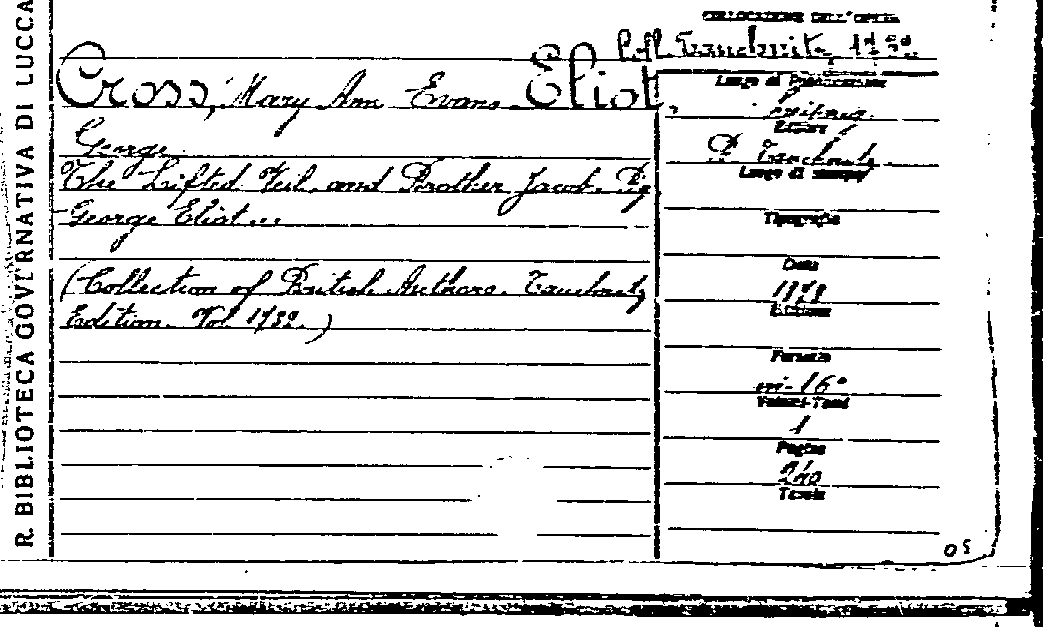 R. BIBLIOTECA GOVERNATIVA DI LUCCA
COLLOCAZIONE DELL'OPERA
Coll. Tauchnitz, 1732
Cross, Mary Ann Evans Eliot,
George
The Lifted Veil and Brother Jacob. By
George Eliot...
(Collection of British Authors. Tauchnitz
Edition. Vol. 1732.)
Luogo di Pubblicazione
Leipzig
Editore
B. Tauchnitz
Luogo di stampa
Tipografia
Data
1878
Edizione
Formato
in-16°
Volumi-Tomi
1
Pagine
Tavole
05